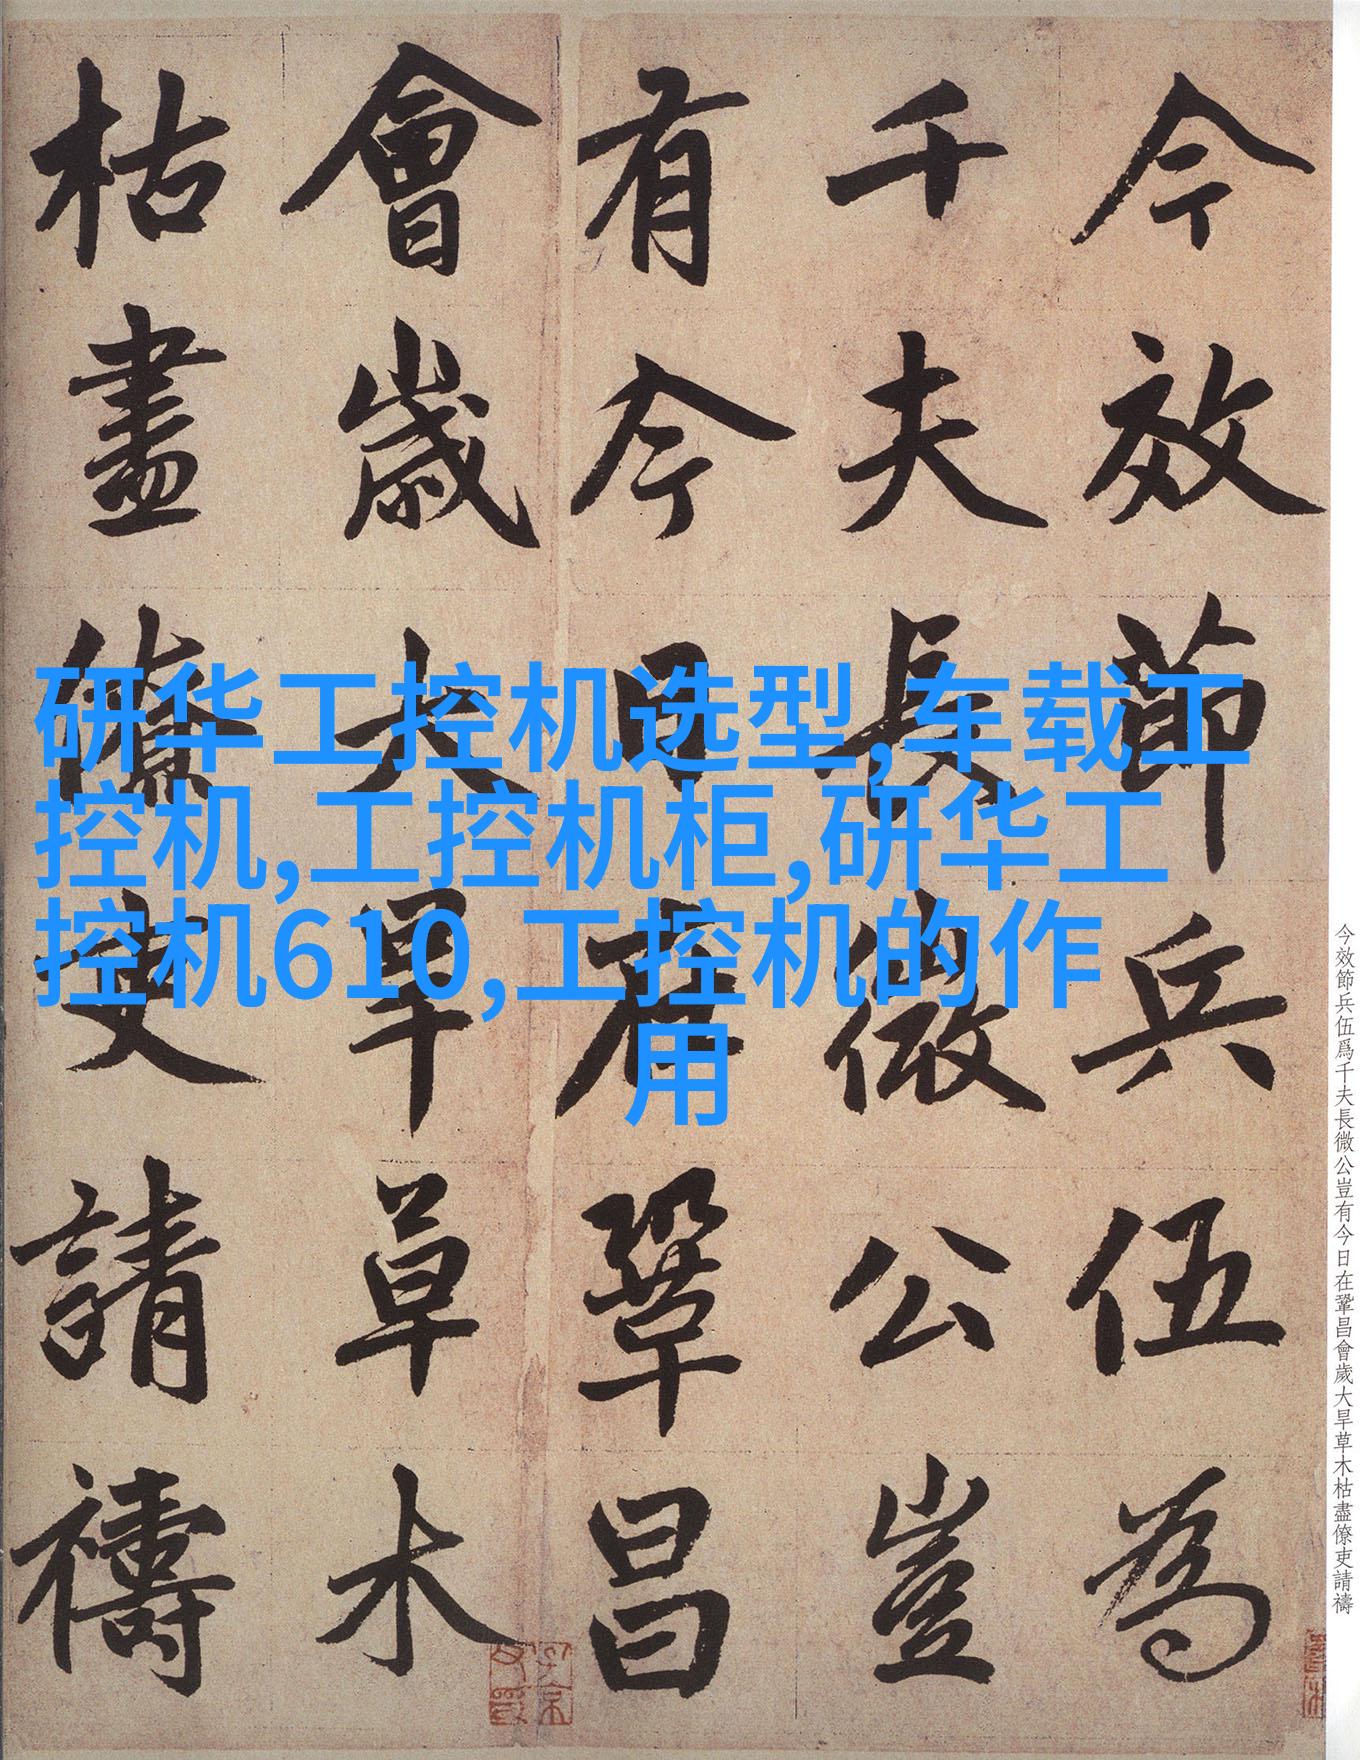 今效節兵伍為
千夫長微公豈
有今日在鞏昌
會歲大旱草木
枯盡僚吏請禱
研华工控机选型,车载工
控机,工控机柜,研华工
控机610,工控机的作
用
今效節兵伍爲千夫長微公豈有今日在鞏昌會歲大旱草木枯盡僚吏請禱